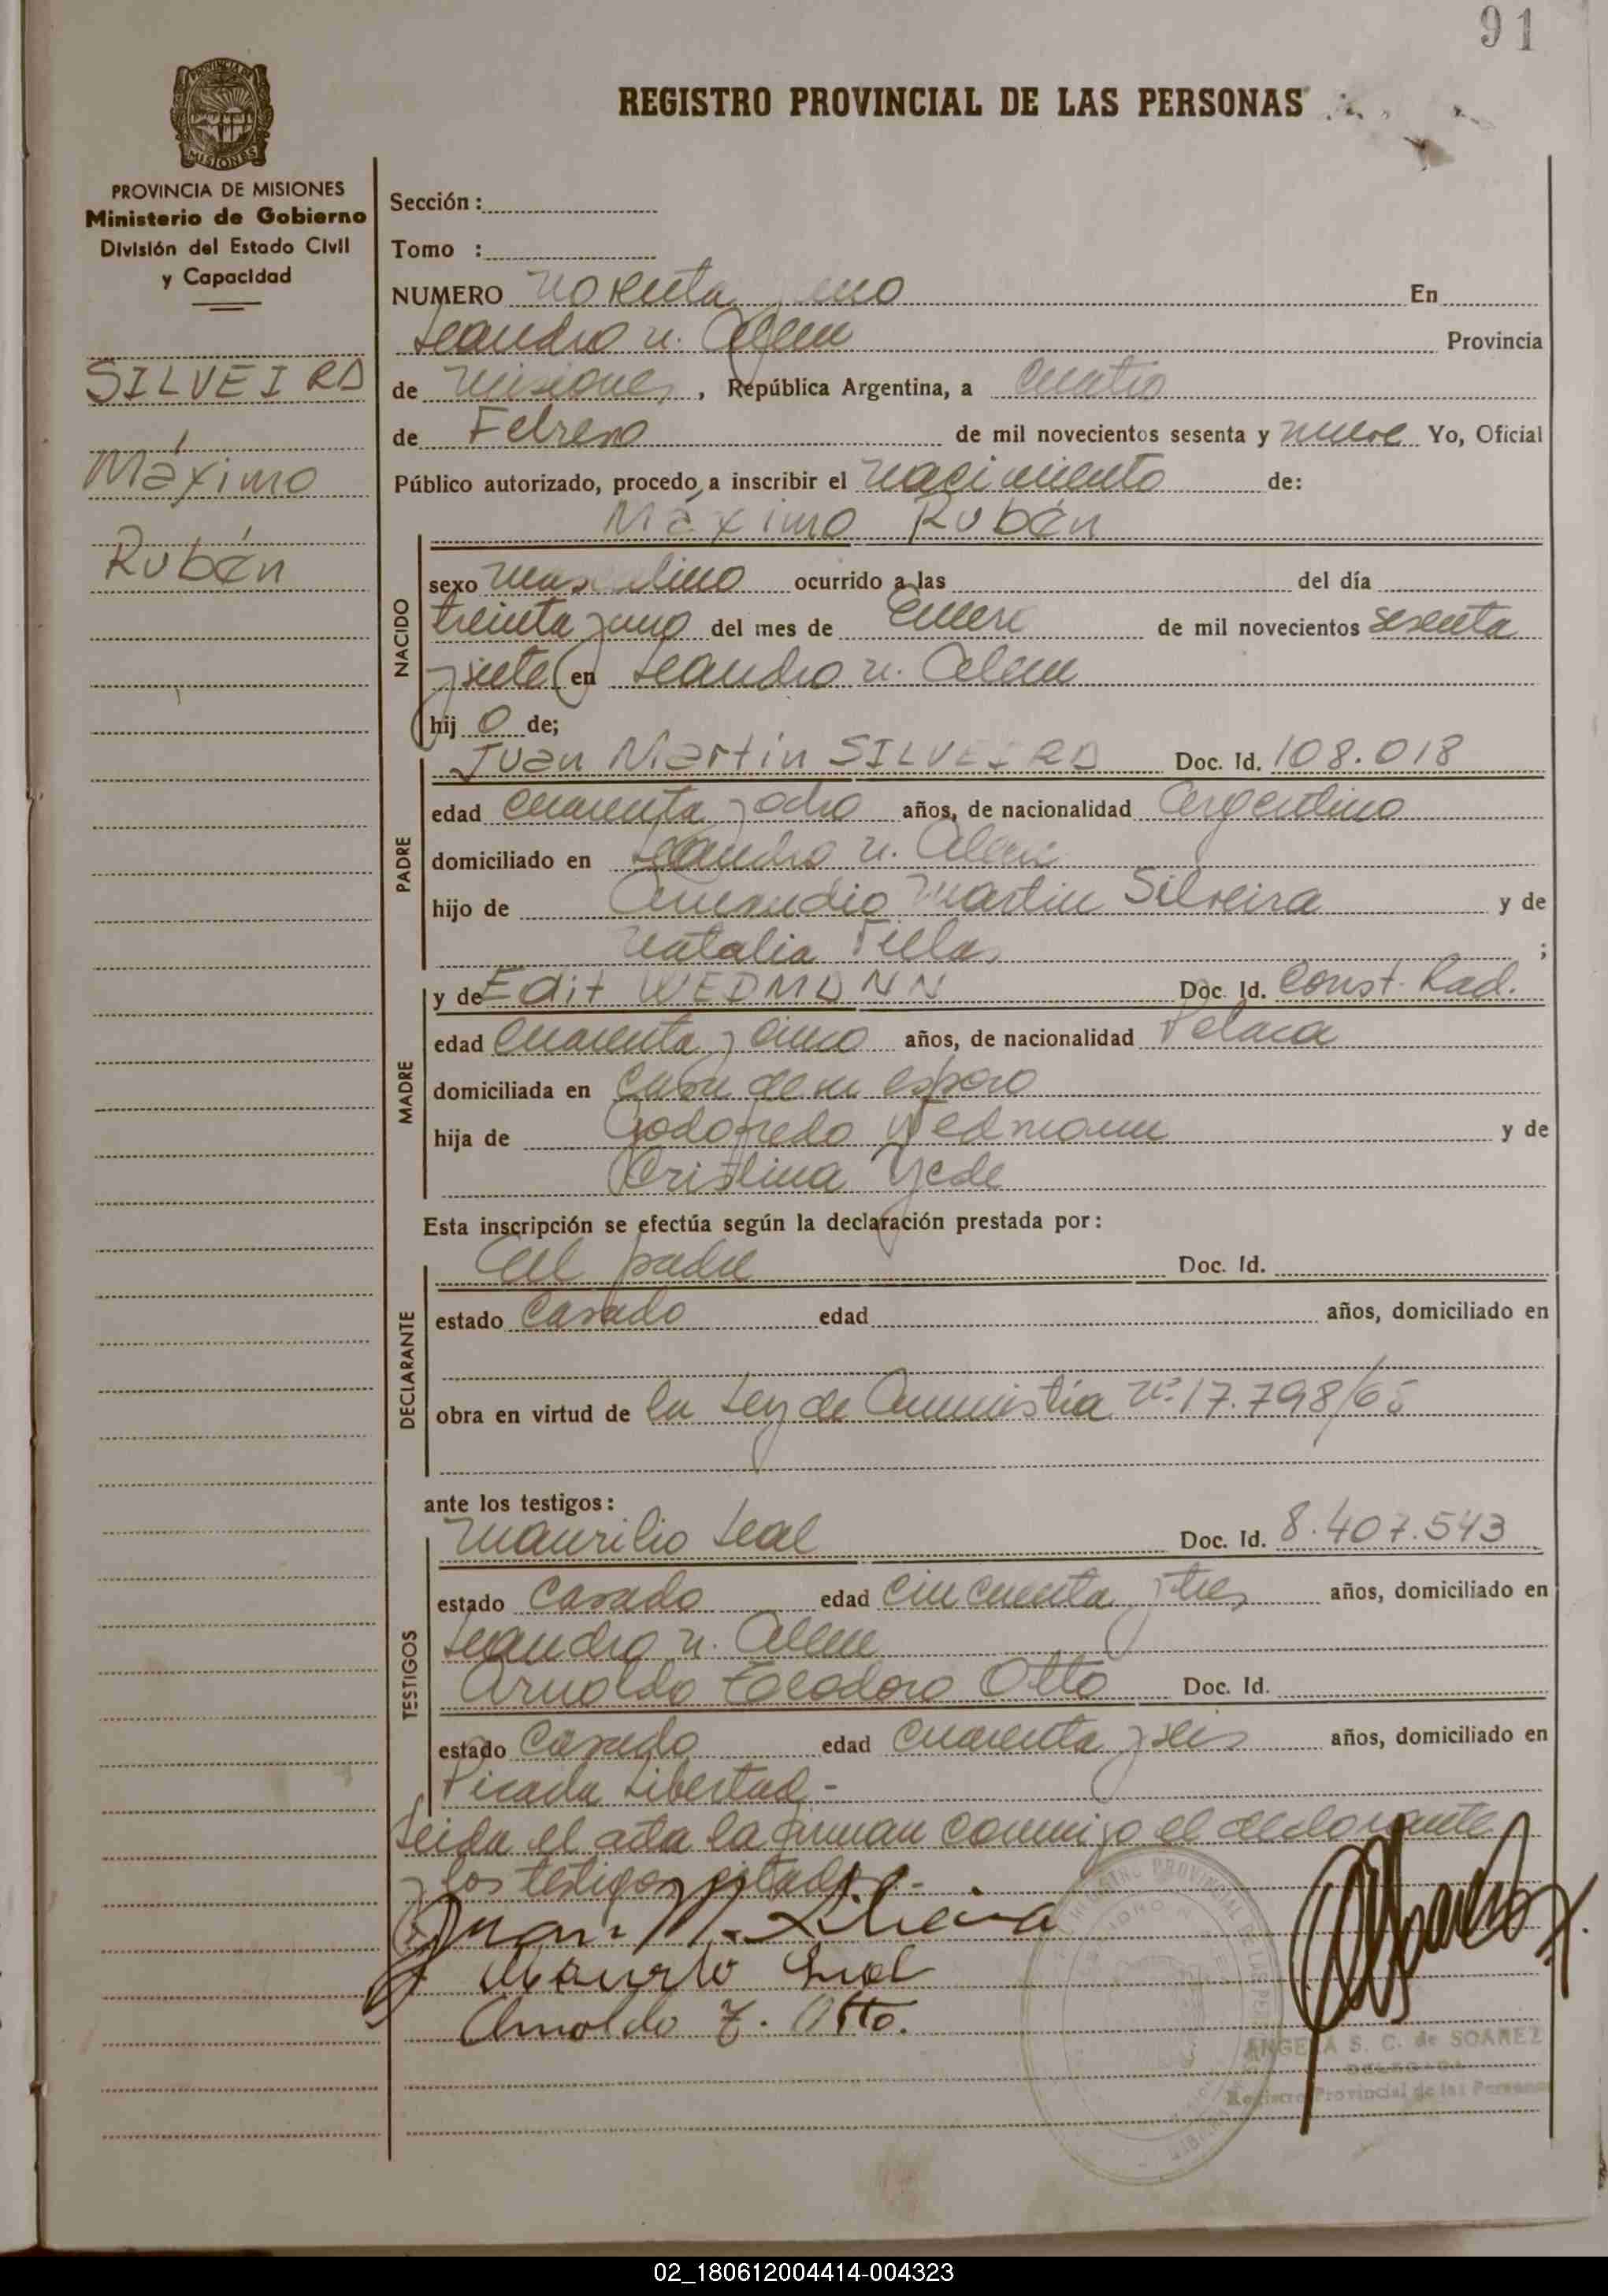 91
REGISTRO PROVINCIAL DE LAS PERSONAS
PROVINCIA DE MISIONES
MISIONES
PROVINCIA DE MISIONES
Ministerio de Gobierno
División del Estado Civil
y Capacidad
SILVEIRA
Máximo
Rubén
Sección :
Tomo :
NUMERO Noventa y uno En
Leandro N. Alem Provincia
de Misiones, República Argentina, a cuatro
de Febrero de mil novecientos sesenta y nueve Yo, Oficial
Público autorizado, procedo a inscribir el nacimiento de:
Máximo Rubén
NACIDO
sexo masculino ocurrido a las del día
treinta y uno del mes de Enero de mil novecientos sesenta
y siete en Leandro N. Alem
hij o de;
PADRE
Juan Martin SILVEIRA Doc. Id. 108.018
edad cuarenta y ocho años, de nacionalidad Argentino
domiciliado en Leandro N. Alem
hijo de Martin Silveira y de
Natalia ;
MADRE
y de Edit WEDMANN Doc. Id. Const. Rad.
edad cuarenta y cinco años, de nacionalidad Polaca
domiciliada en casa de su esposo
hija de Godofredo Wedmann y de
Cristina
Esta inscripción se efectúa según la declaración prestada por:
DECLARANTE
El padre Doc. Id.
estado Casado edad años, domiciliado en
obra en virtud de la Ley de Amnistía Nº 17.798/68
ante los testigos:
TESTIGOS
Maurilio Leal Doc. Id. 8.407.543
estado Casado edad cincuenta y tres años, domiciliado en
Leandro N. Alem
Arnoldo Teodoro Otto Doc. Id.
estado Casado edad cuarenta y seis años, domiciliado en
Picada Libertad -
Leida el acta la firman conmigo el declarante
y los testigos citados.-
Juan M. Silveira
Maurilo Leal
Arnoldo T. Otto.
REGISTRO PROVINCIAL DE LAS PERSONAS
ANGELA S. C. de SOAREZ
DELEGADA
Registro Provincial de las Personas
02_180612004414-004323